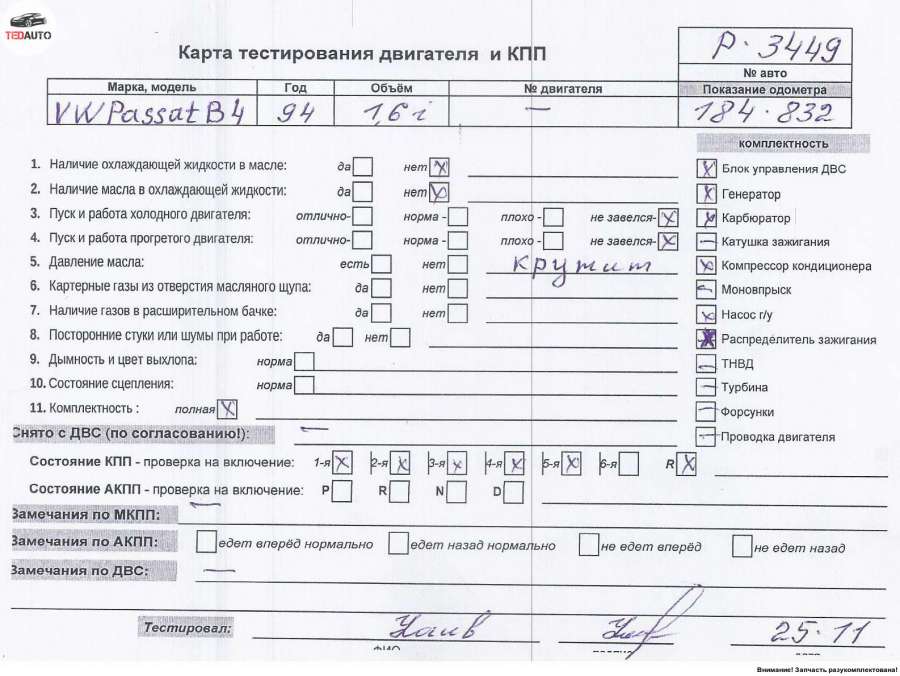 TEDAUTO
Карта тестирования двигателя и КПП
P-3449
№ авто
Марка, модель Год Объём № двигателя Показание одометра
VW Passat B4 94 1,6 i — 184.832
1. Наличие охлаждающей жидкости в масле: да нет x
2. Наличие масла в охлаждающей жидкости: да нет x
3. Пуск и работа холодного двигателя: отлично- норма - плохо - не завелся- x
4. Пуск и работа прогретого двигателя: отлично- норма - плохо - не завелся- x
5. Давление масла: есть нет крутит
6. Картерные газы из отверстия масляного щупа: да нет
7. Наличие газов в расширительном бачке: да нет
8. Посторонние стуки или шумы при работе: да нет
9. Дымность и цвет выхлопа: норма
10. Состояние сцепления: норма
11. Комплектность : полная x
комплектность
x Блок управления ДВС
x Генератор
Карбюратор
— Катушка зажигания
x Компрессор кондиционера
— Моновпрыск
x Насос г/у
x Распределитель зажигания
— ТНВД
— Турбина
— Форсунки
— Проводка двигателя
Снято с ДВС (по согласованию!): —
Состояние КПП - проверка на включение: 1-я x 2-я x 3-я x 4-я x 5-я x 6-я R x
Состояние АКПП - проверка на включение: P R N D
Замечания по МКПП: —
Замечания по АКПП: едет вперёд нормально едет назад нормально не едет вперёд не едет назад
Замечания по ДВС: —
Тестировал: 25.11
ФИО
Внимание! Запчасть разукомплектована!